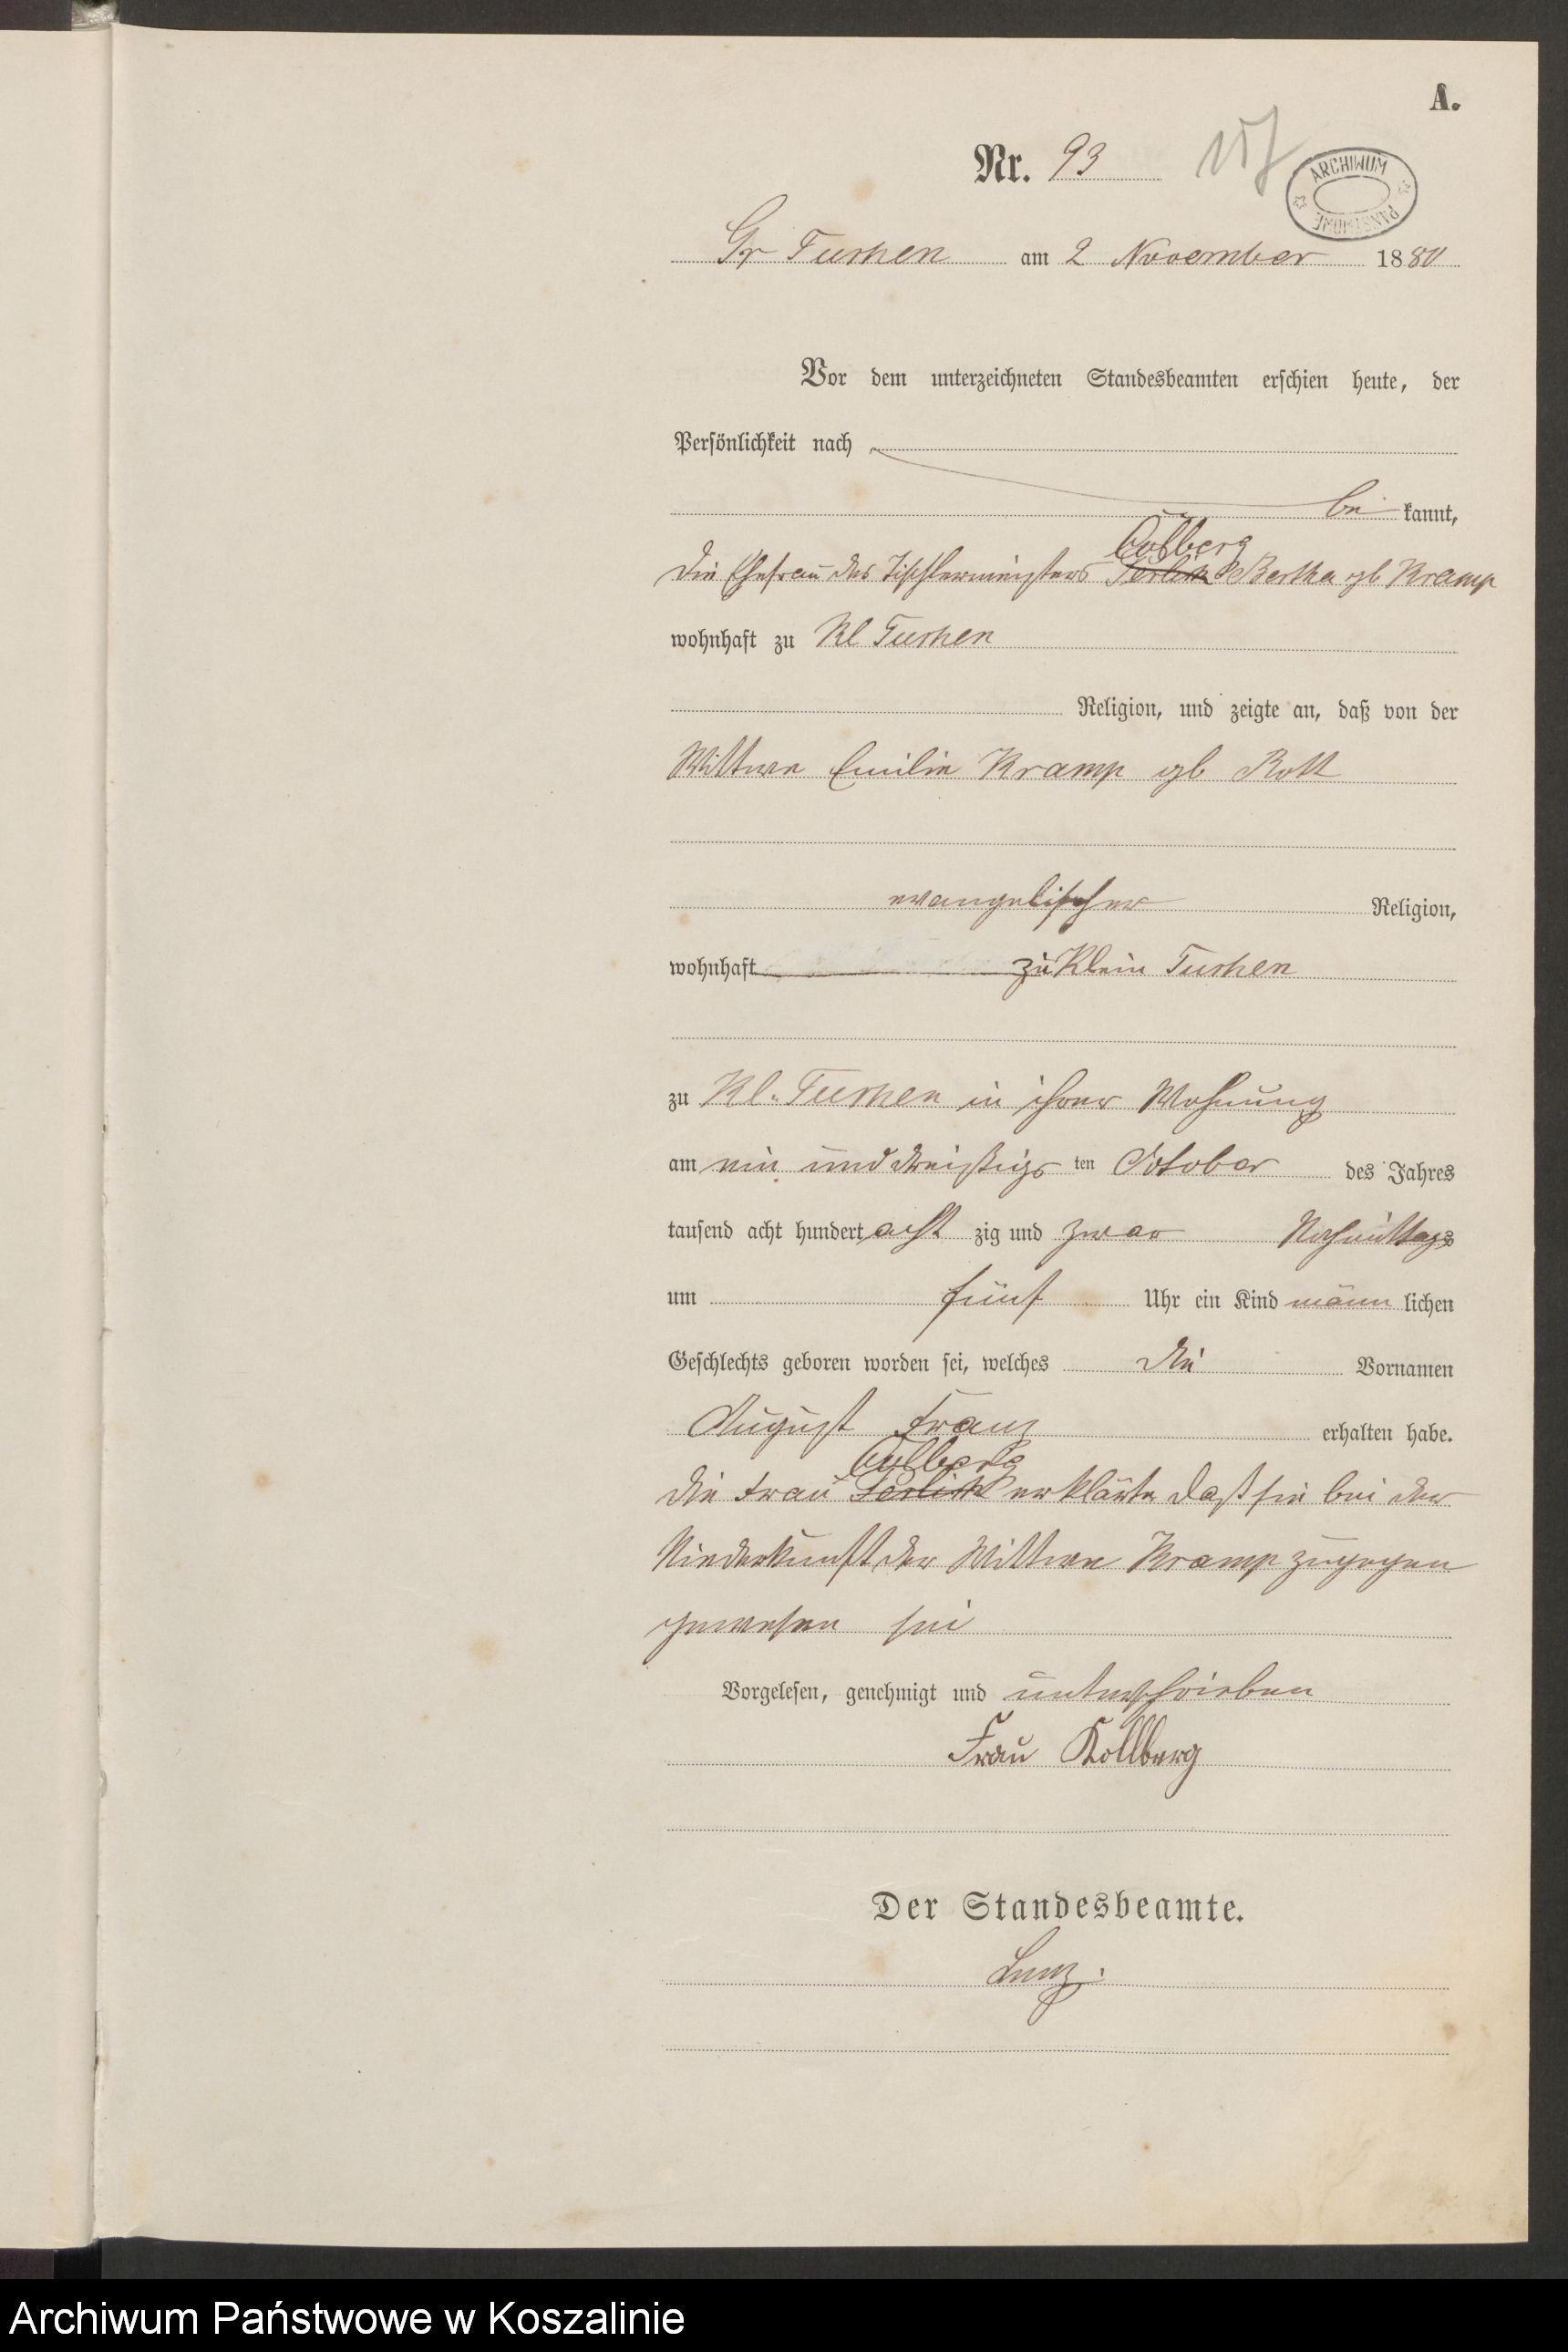 A.
Nr. 93 157
ARCHIWUM PAŃSTWOWE
Gr Tuchen am 2 November 1880
Vor dem unterzeichneten Standesbeamten erschien heute, der
Persönlichkeit nach
be kannt,
Collberg
die Ehefrau des Tischlermeisters Bertha gb Kramp
wohnhaft zu Kl Tuchen
Religion, und zeigte an, daß von der
Wittwe Emilie Kramp gb Rott
evangelischer Religion,
wohnhaft zu Klein Tuchen
zu Kl. Tuchen in ihrer Wohnung
am ein und dreißigs ten October des Jahres
tausend acht hundert acht zig und zwar Nachmittags
um fünf Uhr ein Kind männ lichen
Geschlechts geboren worden sei, welches die Vornamen
August Franz erhalten habe.
Collberg
Die Frau erklärte daß sie bei der
Niederkunft der Wittwe Kramp zugegen
gewesen sei
Vorgelesen, genehmigt und unterschrieben
Frau Kollberg
Der Standesbeamte.
Archiwum Państwowe w Koszalinie